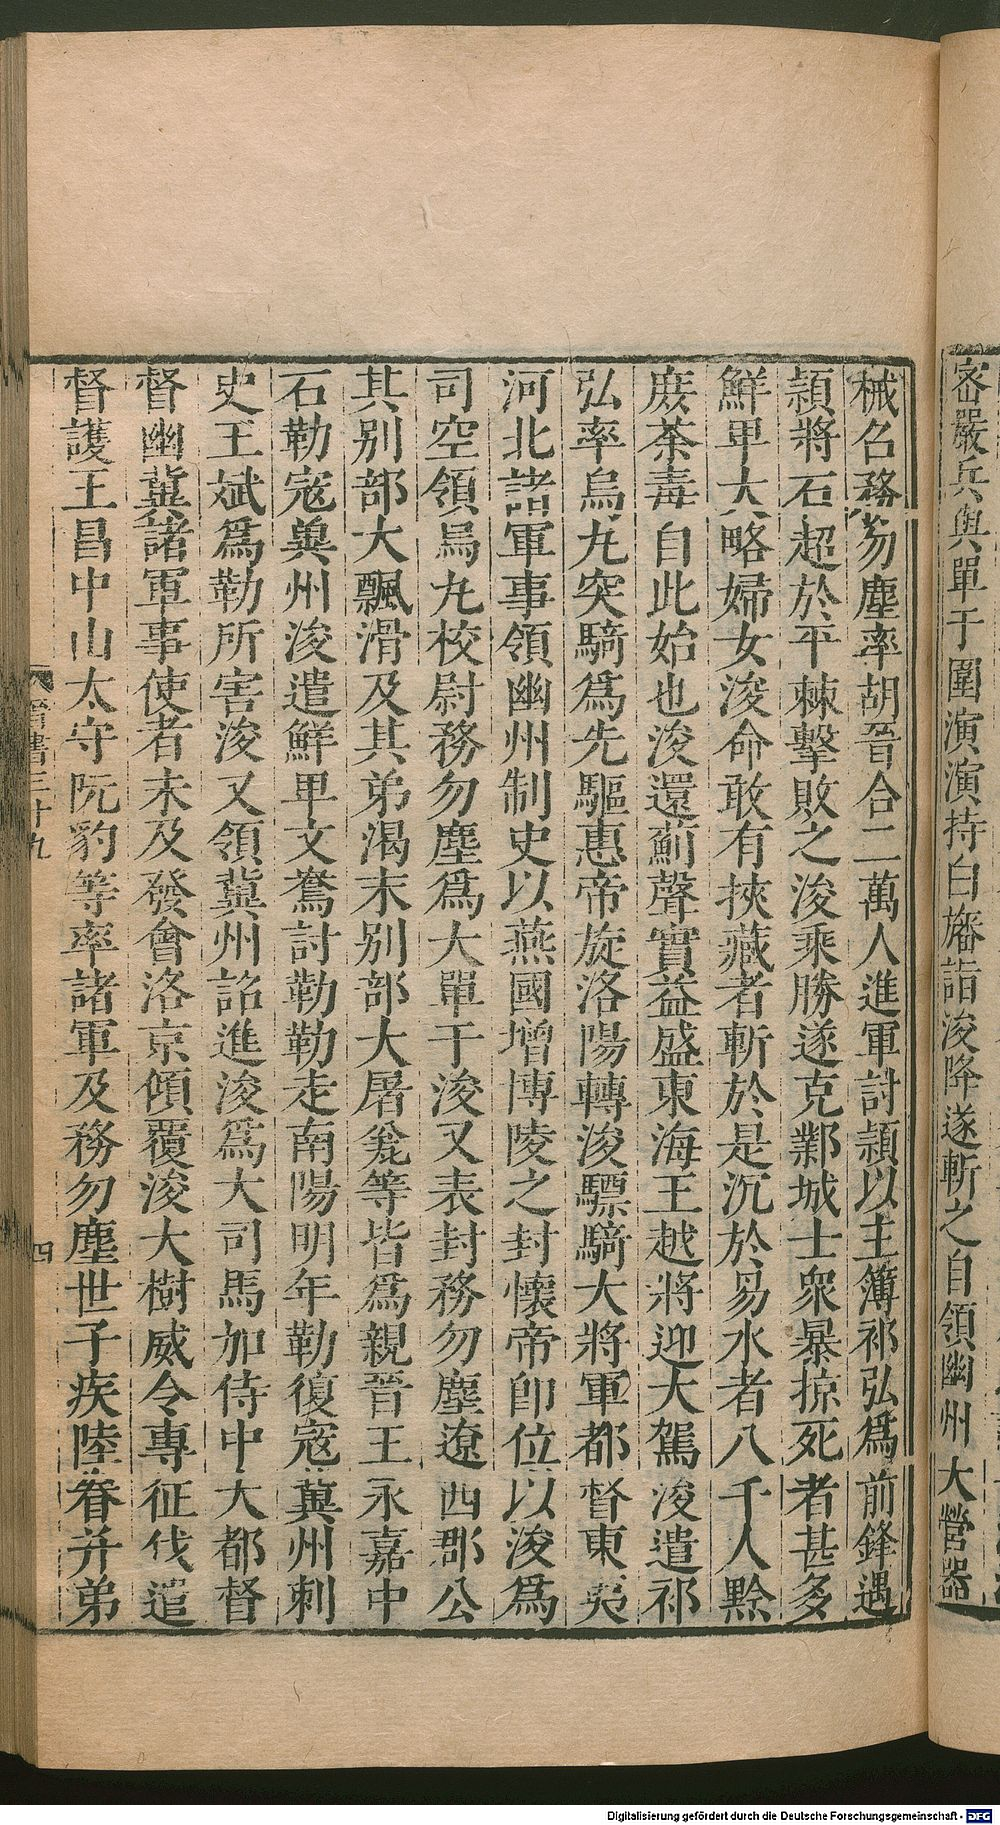 密嚴兵與單于圍演演持白旛詣浚降遂斬之自領幽州大營器
械召務勿塵率胡晉合二萬人進軍討穎以主簿祁弘爲前鋒遇
穎將石超於平棘擊敗之浚乘勝遂克鄴城士衆暴掠死者甚多
鮮卑大略婦女浚命敢有挾藏者斬於是沉於易水者八千人黔
庶荼毒自此始也浚還薊聲實益盛東海王越將迎大駕浚遣祁
弘率烏丸突騎爲先驅惠帝旋洛陽轉浚驃騎大將軍都督東夷
河北諸軍事領幽州刺史以燕國增博陵之封懷帝卽位以浚爲
司空領烏丸校尉務勿塵爲大單于浚又表封務勿塵遼西郡公
其別部大飄滑及其弟渴末別部大屠瓮等皆爲親晉王永嘉中
石勒寇冀州浚遣鮮卑文鴦討勒勒走南陽明年勒復寇冀州刺
史王斌爲勒所害浚又領冀州詔進浚爲大司馬加侍中大都督
督幽冀諸軍事使者未及發會洛京傾覆浚大樹威令專征伐遣
督護王昌中山太守阮豹等率諸軍及務勿塵世子疾陸眷并弟
晉書三十九
四
Digitalisierung gefördert durch die Deutsche Forschungsgemeinschaft - DFG